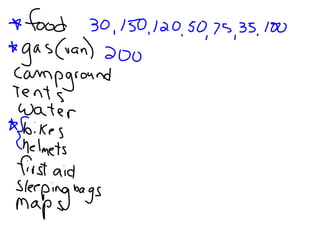 * food 30, 150, 120, 50, 75, 35, 100
* gas (van) 200
campground
Tents
water
* bikes
helmets
first aid
sleeping bags
maps